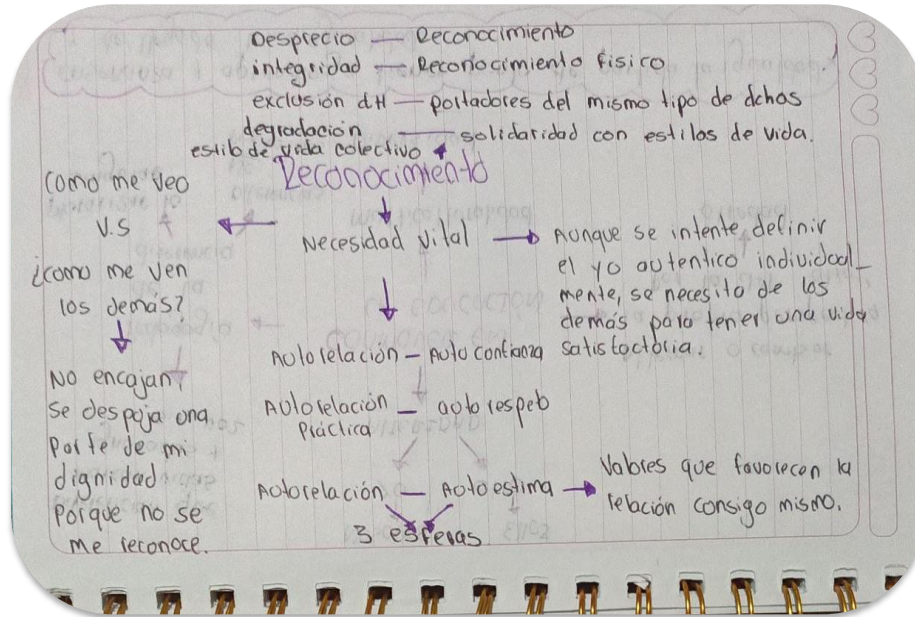 Desprecio — Reconocimiento
integridad — Reconocimiento fisico
exclusión dH — portadores del mismo tipo de dchos
degradación — solidaridad con estilos de vida.
estilo de vida colectivo
Reconocimiento
Como me veo
V.S
¿como me ven
los demás?
No encajan
Se despoja una
Parte de mi
dignidad
Porque no se
me reconoce.
Necesidad Vital
Aunque se intente definir
el yo autentico individual-
mente, se necesita de los
demás para tener una vida
satisfactoria.
Autorelación — Auto confianza
Autorelación — auto respeto
Práctica
Autorelación — Autoestima
3 esferas
Valores que favorecen la
relación consigo mismo.